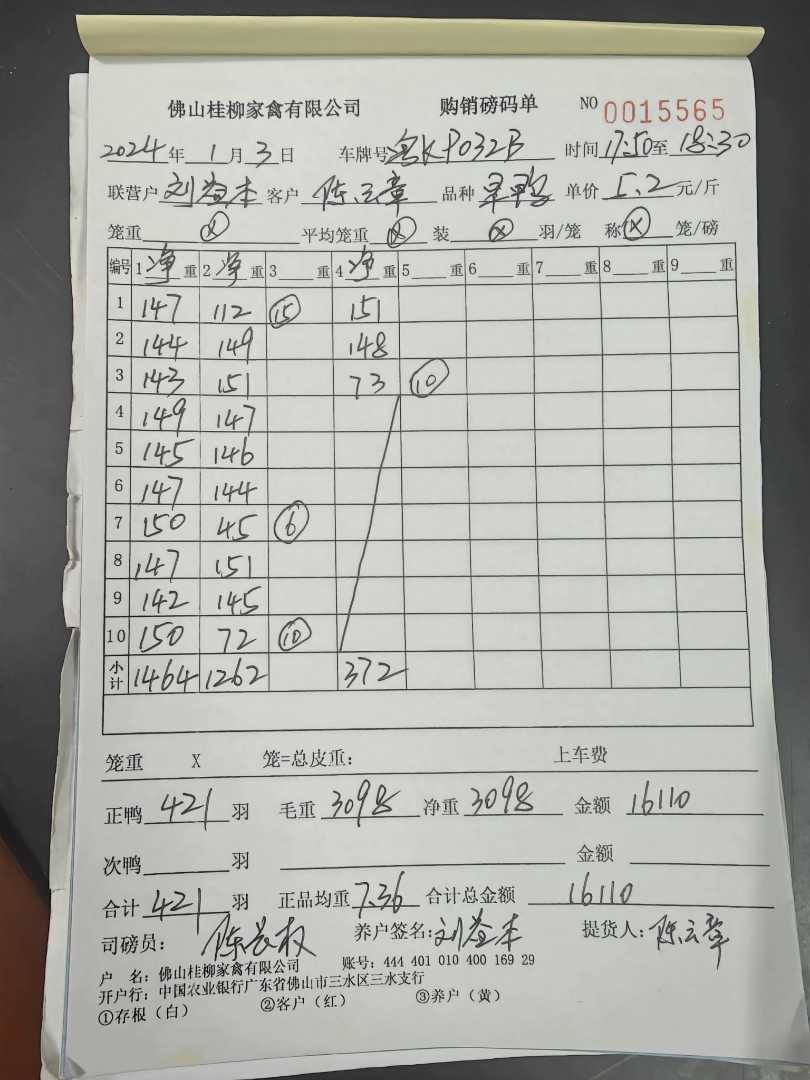 佛山桂柳家禽有限公司 购销磅码单 NO 0015565
2024年 1月 3日 车牌号 粤KP032B 时间 17:50至 18:30
联营户 刘益本 客户 陈云章 品种 旱鸭 单价 5.2 元/斤
笼重 ⓧ 平均笼重 ⓧ 装 ⓧ 羽/笼 称 ⓧ 笼/磅
编号 1 净 重 2 净 重 3 重 4 净 重 5 重 6 重 7 重 8 重 9 重
1 147 112 ⑮ 151
2 144 149 148
3 143 151 73 ⑩
4 149 147
5 145 146
6 147 144
7 150 45 ⑥
8 147 151
9 142 145
10 150 72 ⑩
小计 1464 1262 372
笼重 X 笼=总皮重: 上车费
正鸭 421 羽 毛重 3098 净重 3098 金额 16110
次鸭 羽 金额
合计 421 羽 正品均重 7.36 合计总金额 16110
司磅员: 养户签名: 刘益本 提货人: 陈云章
户 名: 佛山桂柳家禽有限公司 账号: 444 401 010 400 169 29
开户行: 中国农业银行广东省佛山市三水区三水支行
①存根(白) ②客户(红) ③养户(黄)